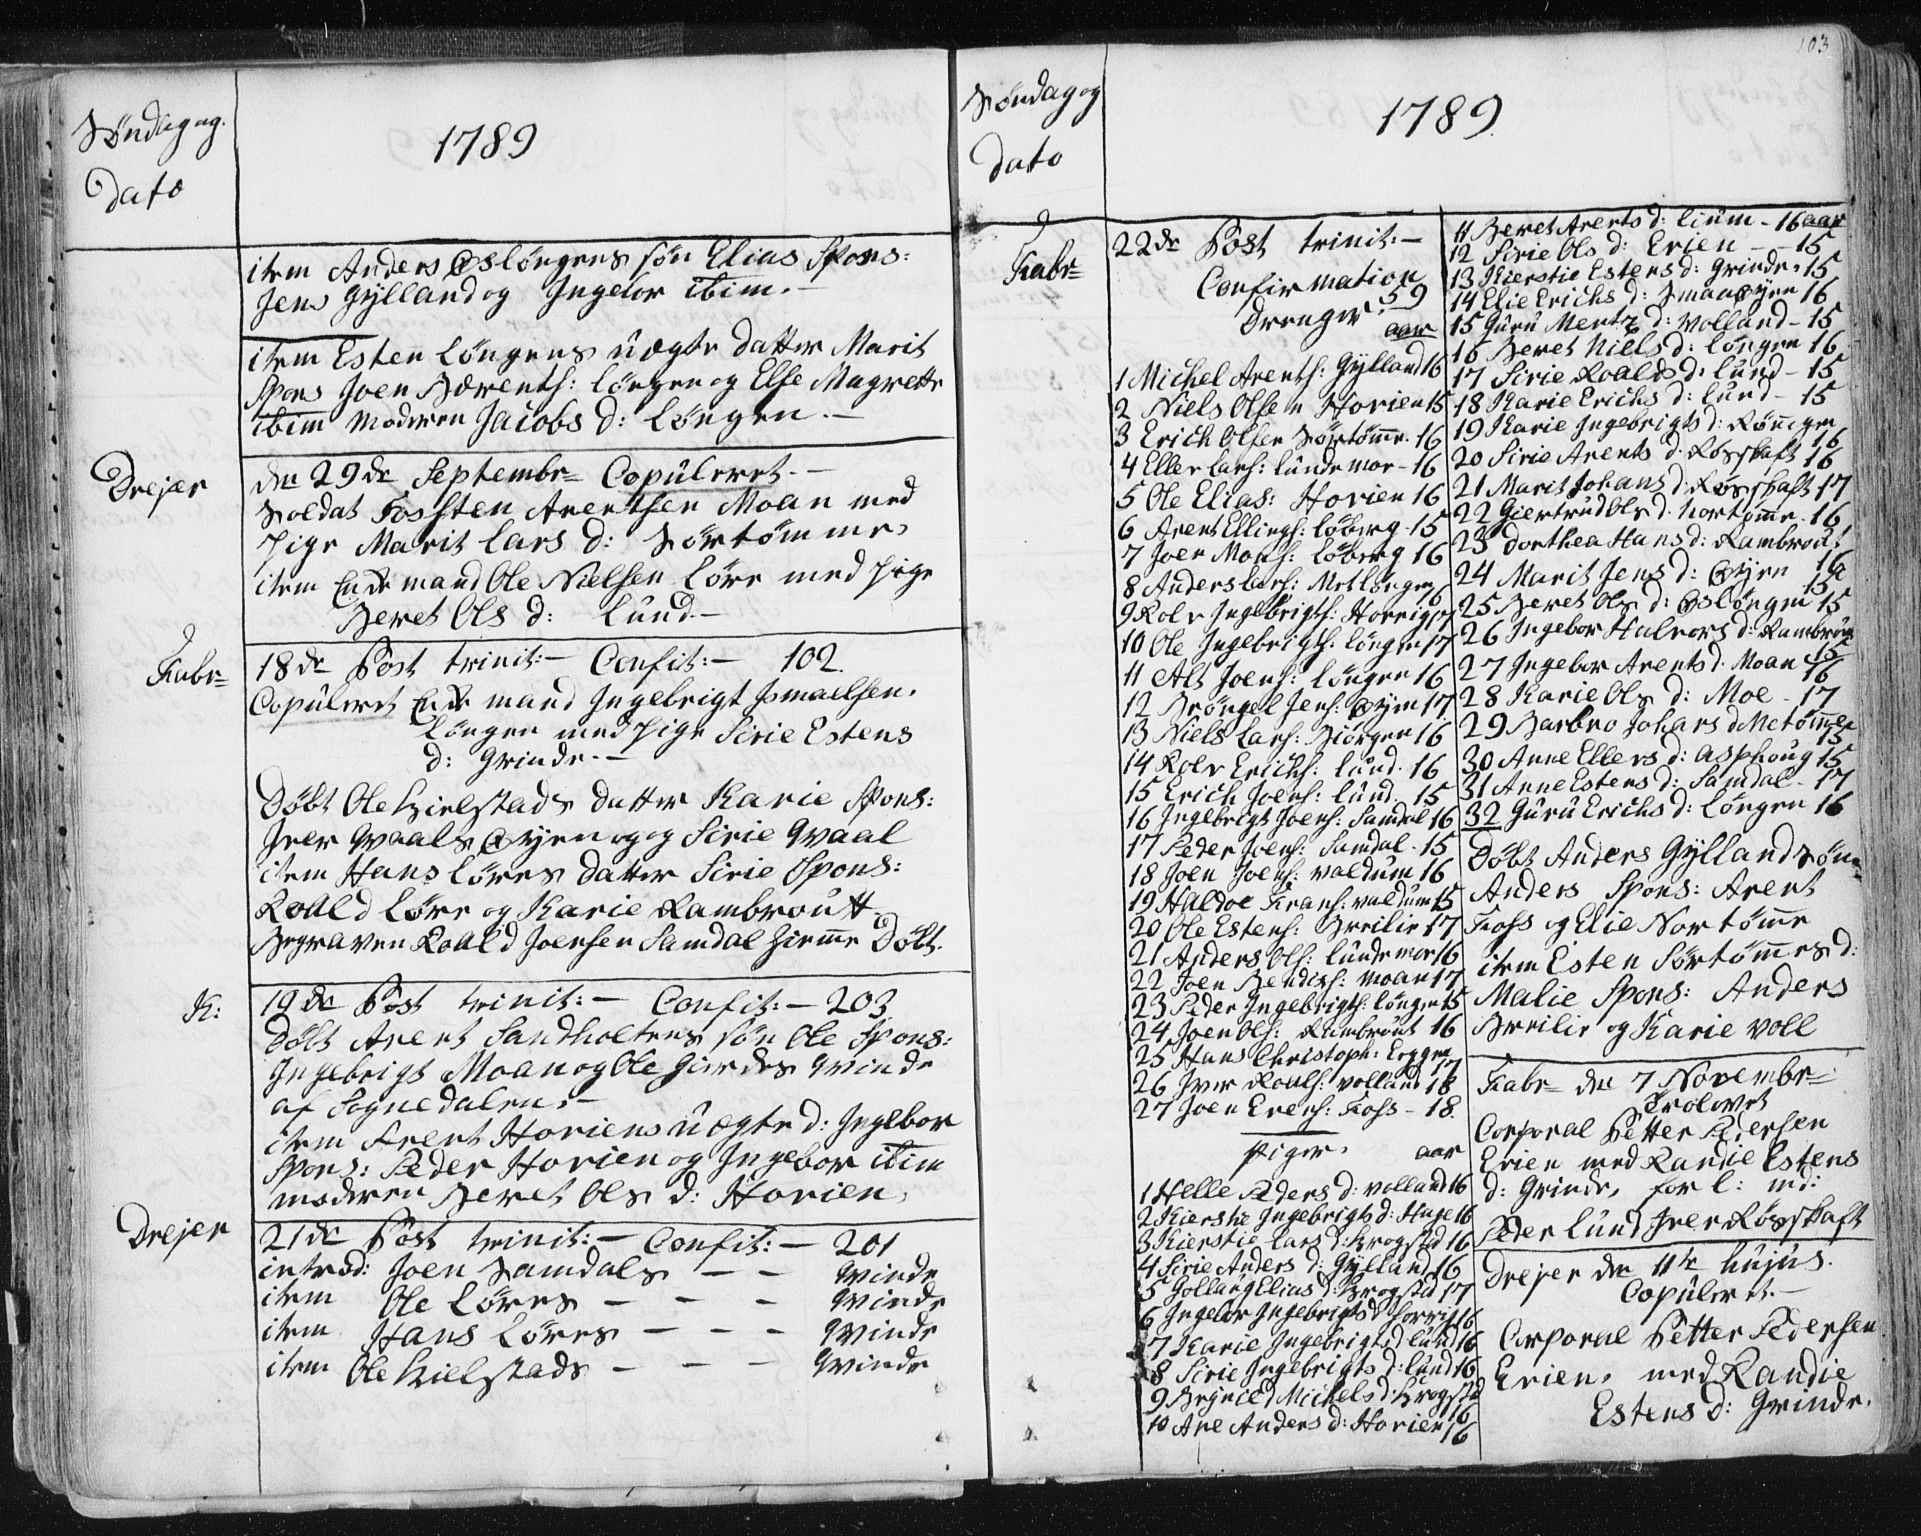 Søndag og
Dato
1789
item Anders Øsløngens søn Elias Spons:
Jens Gylland og Ingebor ibim. —
item Esten Løngens uægte datter Marit
Spons Joen Bærenths: Løngen og Else Magrette
ibim moderen Jacobs d: Løngen. —
Drejer
den 29de Septembr= Copuleret. —
Soldat Fossten Arentsen Moan med
pige Marit Lars d: Sørtømme,
item Enkemand Ole Nielsen Løre med pige
Beret Ols d: Lund. —
Fabr=
18de Post trinit: — Confit: — 102.
Copuleret Enkemand Ingebrigt Ismaelsen.
Løngen med pige Sirie Estens
d: Grinde. —
Døbt Ole Kielstads datter Karie Spons:
Iver Qvaals Øyen og og Sirie Qvaal
item Hans Løres datter Sirie Spons:
Roald Løre og Karie Rambroutt
Begraven Roald Joensen Samdal hiemme Døbt.
K:
19de Post trinit: — Confit: — 203
Døbt Arent Sandholtens søn Ole Spons:
Ingebrigt Moan og Ole Gierdes Qvinde
af Sognedalen. —
item Arent Horiens uægte d: Ingebor
Spons: Peder Horien og Ingebor ibim
moderen Beret Ols d: Horien,
Drejer
21de Post trinit: — Confit: — 201
introd: Joen Samdals — — Qvinde
item Ole Løres — — — Qvinde
item Hans Løres — — — Qvinde
item Ole Kielstads — — — Qvinde
103
Søndag og
dato
1789.
Fabr=
22de Post trinit: —
Confirmation
59
Drenger.
aar
1 Michel Arenths: Gylland 16
2 Niels Olsen Horien 15
3 Erich Olsen Sørtømme. 16
4 Eller Lars: Lundemor — 16
5 Ole Elias: Horien 16
6 Arent Ellings: Løberg — 15
7 Joen Mons: Løberg 16
8 Anders Lars: Metløngen 16
9 Rolv Ingebrigts: Horrig 17
10 Ole Ingebrigts: Løngen 17
11 Alt Joens: Løngen 16
12 Brøngel Jens: Øyen 17
13 Niels Lars: Biørgen 16
14 Rolv Erichs: Lund. 16
15 Erich Joens: Lund. 15
16 Ingebrigt Joens: Samdal 16
17 Peder Joens: Samdal — 15
18 Joen Joens: Valdum 16
19 Haldoe Frans: Valdum 15
20 Ole Estens: Breilie 17
21 Anders Ols: Lundemor 16
22 Joen Bendixs: Moan 17
23 Peder Ingebrigts: Løngen 15
24 Joen Ols: Rambrout 16
25 Hans Christoph: Eggen
17
26 Iver Roals: Volland 18
27 Joen Evens: Foss — 18.
piger. aar
1 Helle Peders d: Volland 16
2 Kierstie Ingebrigts d: Huge 16
3 Kierstie Lars d: Krogstad 16
4 Sirie Anders d: Gylland 16
5 Gollaug Elias d: Krogstad 17
6 Ingebor Ingebrigts d: Horrig 16
7 Karie Ingebrigts d: Lund 16
8 Sirie Ingebrigts d: Lund 16
9 Brynild Michels d: Krogstad
16
10 Ane Anders d: Horien 16
11 Beret Arents d: Lium — 16 aar
12 Sirie Ols d: Erien — — 15
13 Kierstie Estens d: Grinde, 15
14 Elie Erichs d: Smaaøyen 16
15 Guru Mentz d: Volland — 15
16 Beret Niels d: Løngen 16
17 Sirie Roalds d: Lund — 15
18 Karie Erichs d: Lund — 15
19 Karie Ingebrigts d: Rønnigen
16
20 Sirie Arents d: Røsskaft 16
21 Marit Johans d: Røsskaft 17
22 Giertrud Ols d. Nortømme. 16
23 Dorthea Hans d: Rambrout
16
24 Marit Jens d: Øyen 15
25 Beret Ols d: Øsløngen 15
26 Ingebor Halvors d: Rambrout
15
27 Ingebor Arents d. Moan 16
28 Karie Ols d: Moe — 17
29 Barbro Johans d Metømme
15
30 Anne Ellers d: Asphoug 15
31 Anne Estens d: Samdal — 17
32 Guru Erichs d: Løngen 16
Døbt Anders Gylland søn
Anders Spons: Arent
Foss og Elie Nortømme
item Esten Sørtømmes d:
Malie Spons: Anders
Breilie og Karie Voll
Fabr= den 7 Novembr=
Trolovet
Corporal Petter Pedersen
Erien med Randie Estens
d: Grinde, forl: md:
Peder Lund Iver Røsskaft
Drejer den 11te hujus.
Copuleret. —
Corporal Petter Pedersen
Erien, med Randie
Estens d: Grinde.